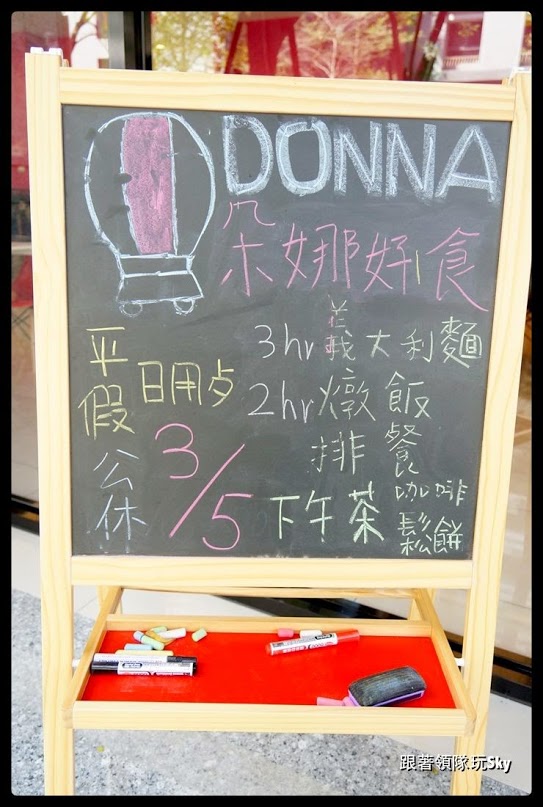 DONNA
朵娜好食
平 日用歺 3hr 義大利麵
假 2hr 燉飯
排餐
公休 3/5 下午茶 咖啡
鬆餅
跟著領隊玩Sky